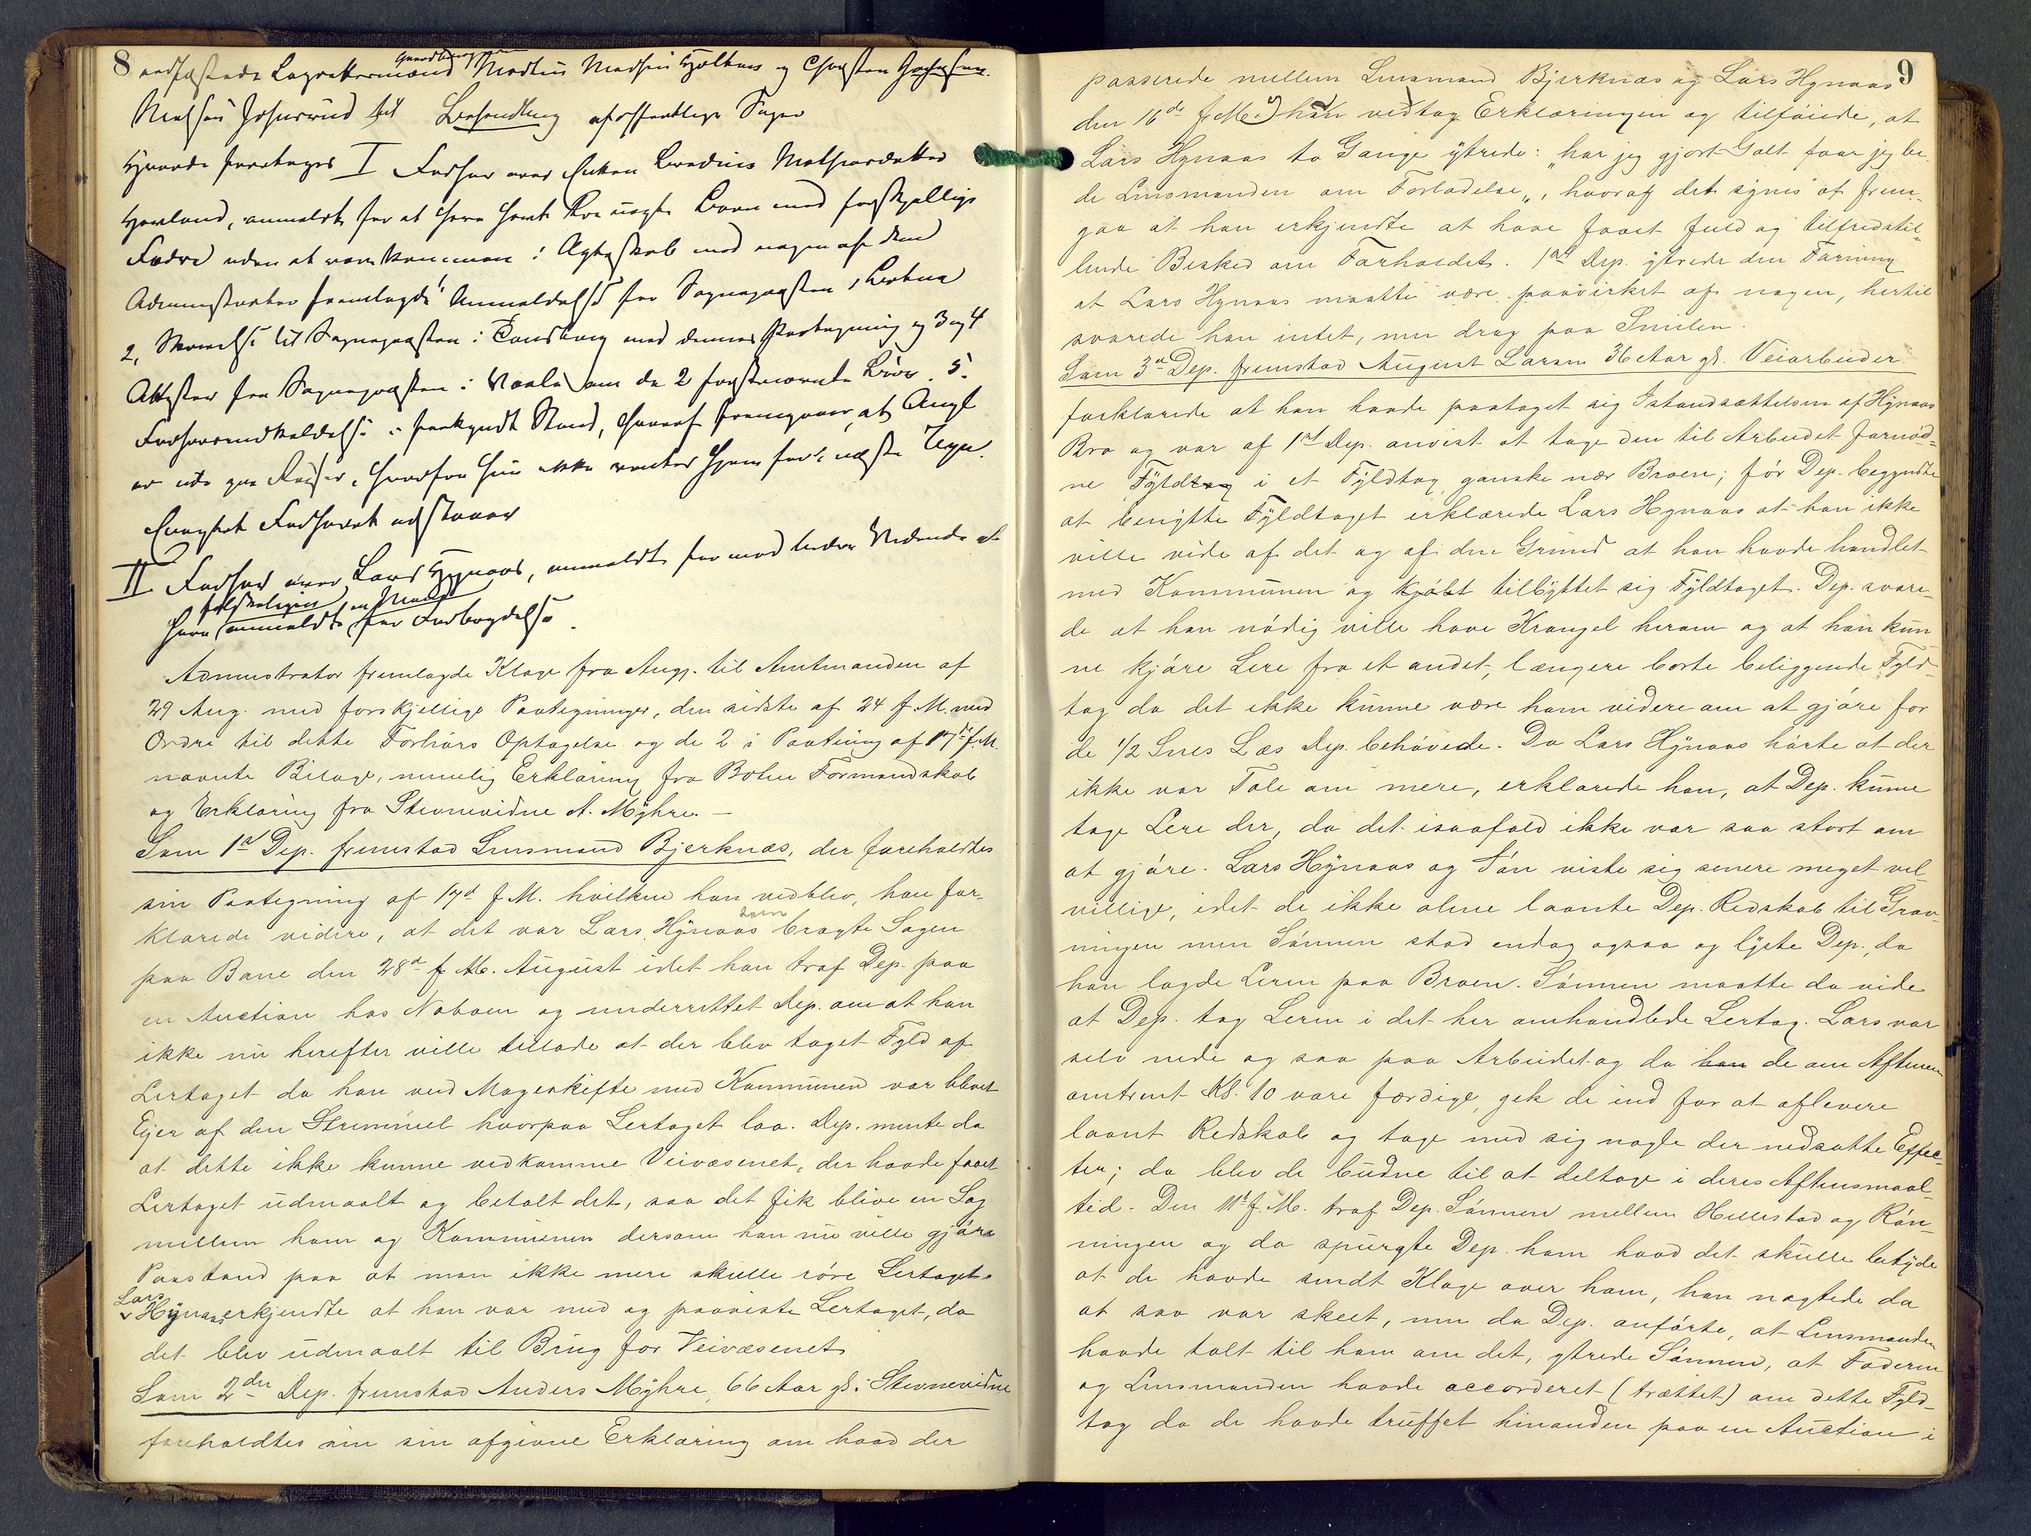 8
edfæstede Lagrettesmænd Martin Madsen Hjelkens og Christen
Mathis til Behandling af offentlige Sager
Hvorda foretages I Forhør over Enken Matheasdatter
Hovland, anmeldt for at have havt uægte Børn med forskjellige
Fædre uden at være kommen i Ægteskab med nogen af dem
Administrator fremlagde 1 Anmeldelse fra Sognepræsten i Botne
2, Skrivelse til Sognepræsten i Tønsberg med dennes Paategning og 3 og 4
Attester fra Sognepræsten i Vaale om de 2 førstnævnte Børn. 5.
Forhørsudskrivelse i forkyndt Stand, hvoraf fremgaar, at Angj.
er ude paa Reiser, hvorfor hun ikke ventes hjem før i næste Uge.
Forhøret udstaaer
II Forhør over Lars Hynaas, anmeldt for mod bedre Vidende at
have falskeligen anmeldt en Mand for Forbrydelse.
Administrator fremlagde Klage fra Angj. til Amtmanden af
29 Aug. med forskjellige Paategninger, den sidste af 24 f. M. med
Ordre til dette Forhørs Optagelse og de 2 i Paategning af 17de f. M.
nævnte Bilage, nemlig Erklæring fra Botne Formandskab
og Erklæring fra Stevnevidne A. Myhre. —
Som 1ste Dep. fremstod Lensmand Bjerknæs, der foreholdtes
sin Paategning af 17d f. M. hvilken han vedblev, han for-
klarede videre, at det var Lars Hynaas som bragte Sagen
paa Bane den 28d f. M. August idet han traf Dep. paa
en Auction hos Naboen og underrettet Dep. om at han
ikke nu herefter ville tillade at der blev taget Fyld af
Lertaget da han ved Mageskifte med Kommunen var blevet
Ejer af den Strimmel hvorpaa Lertaget laa. Dep. mente da
at dette ikke kunne vedkomme Veivæsenet, der havde faaet
Lertaget udmaalt og betalt det, saa det fik blive en Sag
mellem ham og Kommunen dersom han nu ville gjøre
Paastand paa at man ikke mere skulle røre Lertaget.
Lars Hynaas erkjendte at han var med og paaviste Lertaget, da
det blev udmaalt til Brug for Veivæsenet
Som 2den Dep. fremstod Anders Myhre, 66 Aar gl. Stevnevidne
foreholdtes sin sin afgivne Erklæring om hvad der
9
passerede mellem Lensmand Bjerknæs og Lars Hynaas
den 16de f. M. han vedtog Erklæringen og tilføiede, at
Lars Hynaas to Gange ytrede: "har jeg gjort Galt faar jeg be-
de Lensmanden om Forladelse", hvoraf det synes at frem-
gaa at han erkjendte at have faaet fuld og tilfredstil-
lende Besked om Forholdet. 1ste Dep. ytrede den Formening
at Lars Hynaas maatte være paavirket af nogen, hertil
svarede han intet, men drog paa Smilen.
Som 3d Dep. fremstod August Larsen 36 Aar gl. Veiarbeider
forklarede at han havde paataget sig Istandsættelsen af Hynaas
Bro og var af 1ste Dep. anvist at tage den til Arbeidet fornød-
ne Fyldtag i et Fyldtag ganske nær Broen; før Dep. begyndte
at benytte Fyldtaget erklærede Lars Hynaas at han ikke
ville vide af det og af den Grund at han havde handlet
med Kommunen og kjøbt tilbyttet sig Fyldtaget. Dep. svare-
de at han nødig ville have Krangel herom og at han kun-
ne kjøre Lere fra et andet, længere borte beliggende Fyld-
tag da det ikke kunne være ham videre om at gjøre for
de 1/2 Snes Læs Dep. behøvede. Da Lars Hynaas hørte at der
ikke var Tale om mere, erklærede han, at Dep. kunne
tage Lere der, da det isaafald ikke var saa stort om
at gjøre. Lars Hynaas og Søn viste sig senere meget vel-
villige, idet de ikke alene laante Dep. Redskab til Grav-
ningen men Sønnen stod endog ogsaa og lyste Dep., da
han lagde Leren paa Broen. Sønnen maatte da vide
at Dep. tog Leren i det her omhandlede Lertag. Lars var
selv nede og saa paa Arbeidet og da han de om Aftenen
omtrent Kl. 10 vare færdige, gik de ind for at aflevere
laant Redskab og tage med sig nogle der nedsatte Effec-
ter; da blev de budne til at deltage i deres Aftensmaal-
tid. Den 11t f. M. traf Dep. Sønnen mellem Hillestad og Røn-
ningen og da spurgte Dep. ham hvad det skulle betyde
at de havde sendt Klage over ham, han nægtede da
at saa var skeet, men da Dep. anførte, at Lensmanden
havde talt til ham om det, ytrede Sønnen, at Faderen
og Lensmanden havde accorderet (trættet) om dette Fyld-
tag da de havde truffet hinanden paa en Auction i